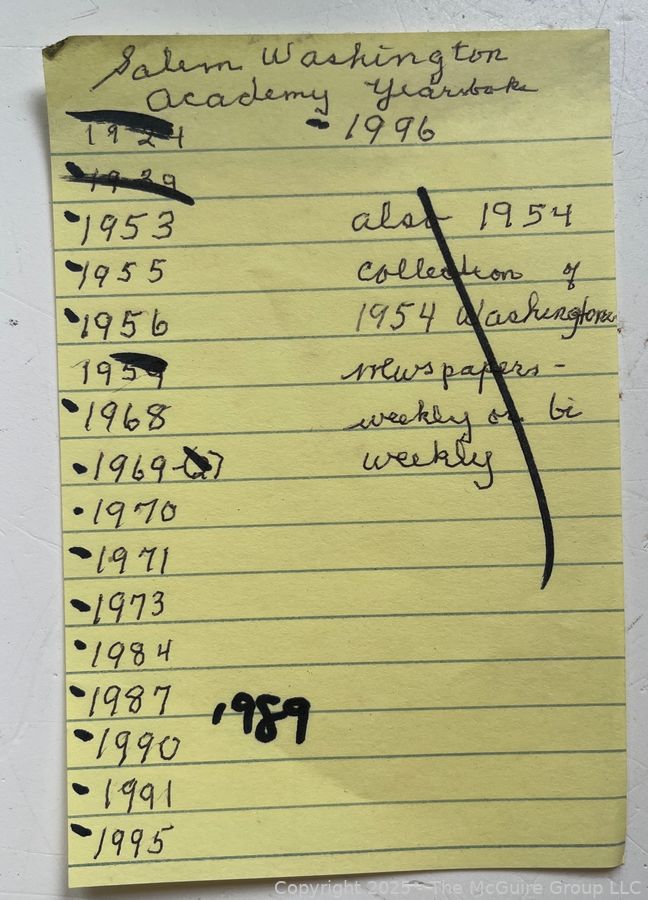 Salem Washington
Academy Yearbook
1924
1939
1953
1955
1956
1959
1968
1969-(2)
1970
1971
1973
1984
1987
1989
1990
1991
1995
1996
also 1954
collection of
1954 Washington
newspapers-
weekly or bi
weekly
Copyright 2025 - The McGuire Group LLC